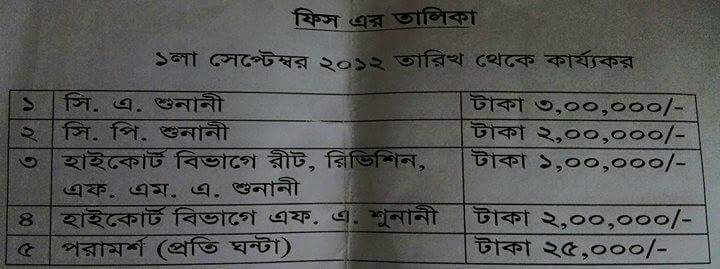 ফিস এর তালিকা
১লা সেপ্টেম্বর ২০১২ তারিখ থেকে কার্য্যকর
১ সি. এ. শুনানী টাকা ৩,০০,০০০/-
২ সি. পি. শুনানী টাকা ২,০০,০০০/-
৩ হাইকোর্ট বিভাগে রীট, রিভিশিন, টাকা ১,০০,০০০/-
এফ. এম. এ. শুনানী
৪ হাইকোর্ট বিভাগে এফ. এ. শূনানী টাকা ২,০০,০০০/-
৫ পরামর্শ (প্রতি ঘন্টা) টাকা ২৫,০০০/-